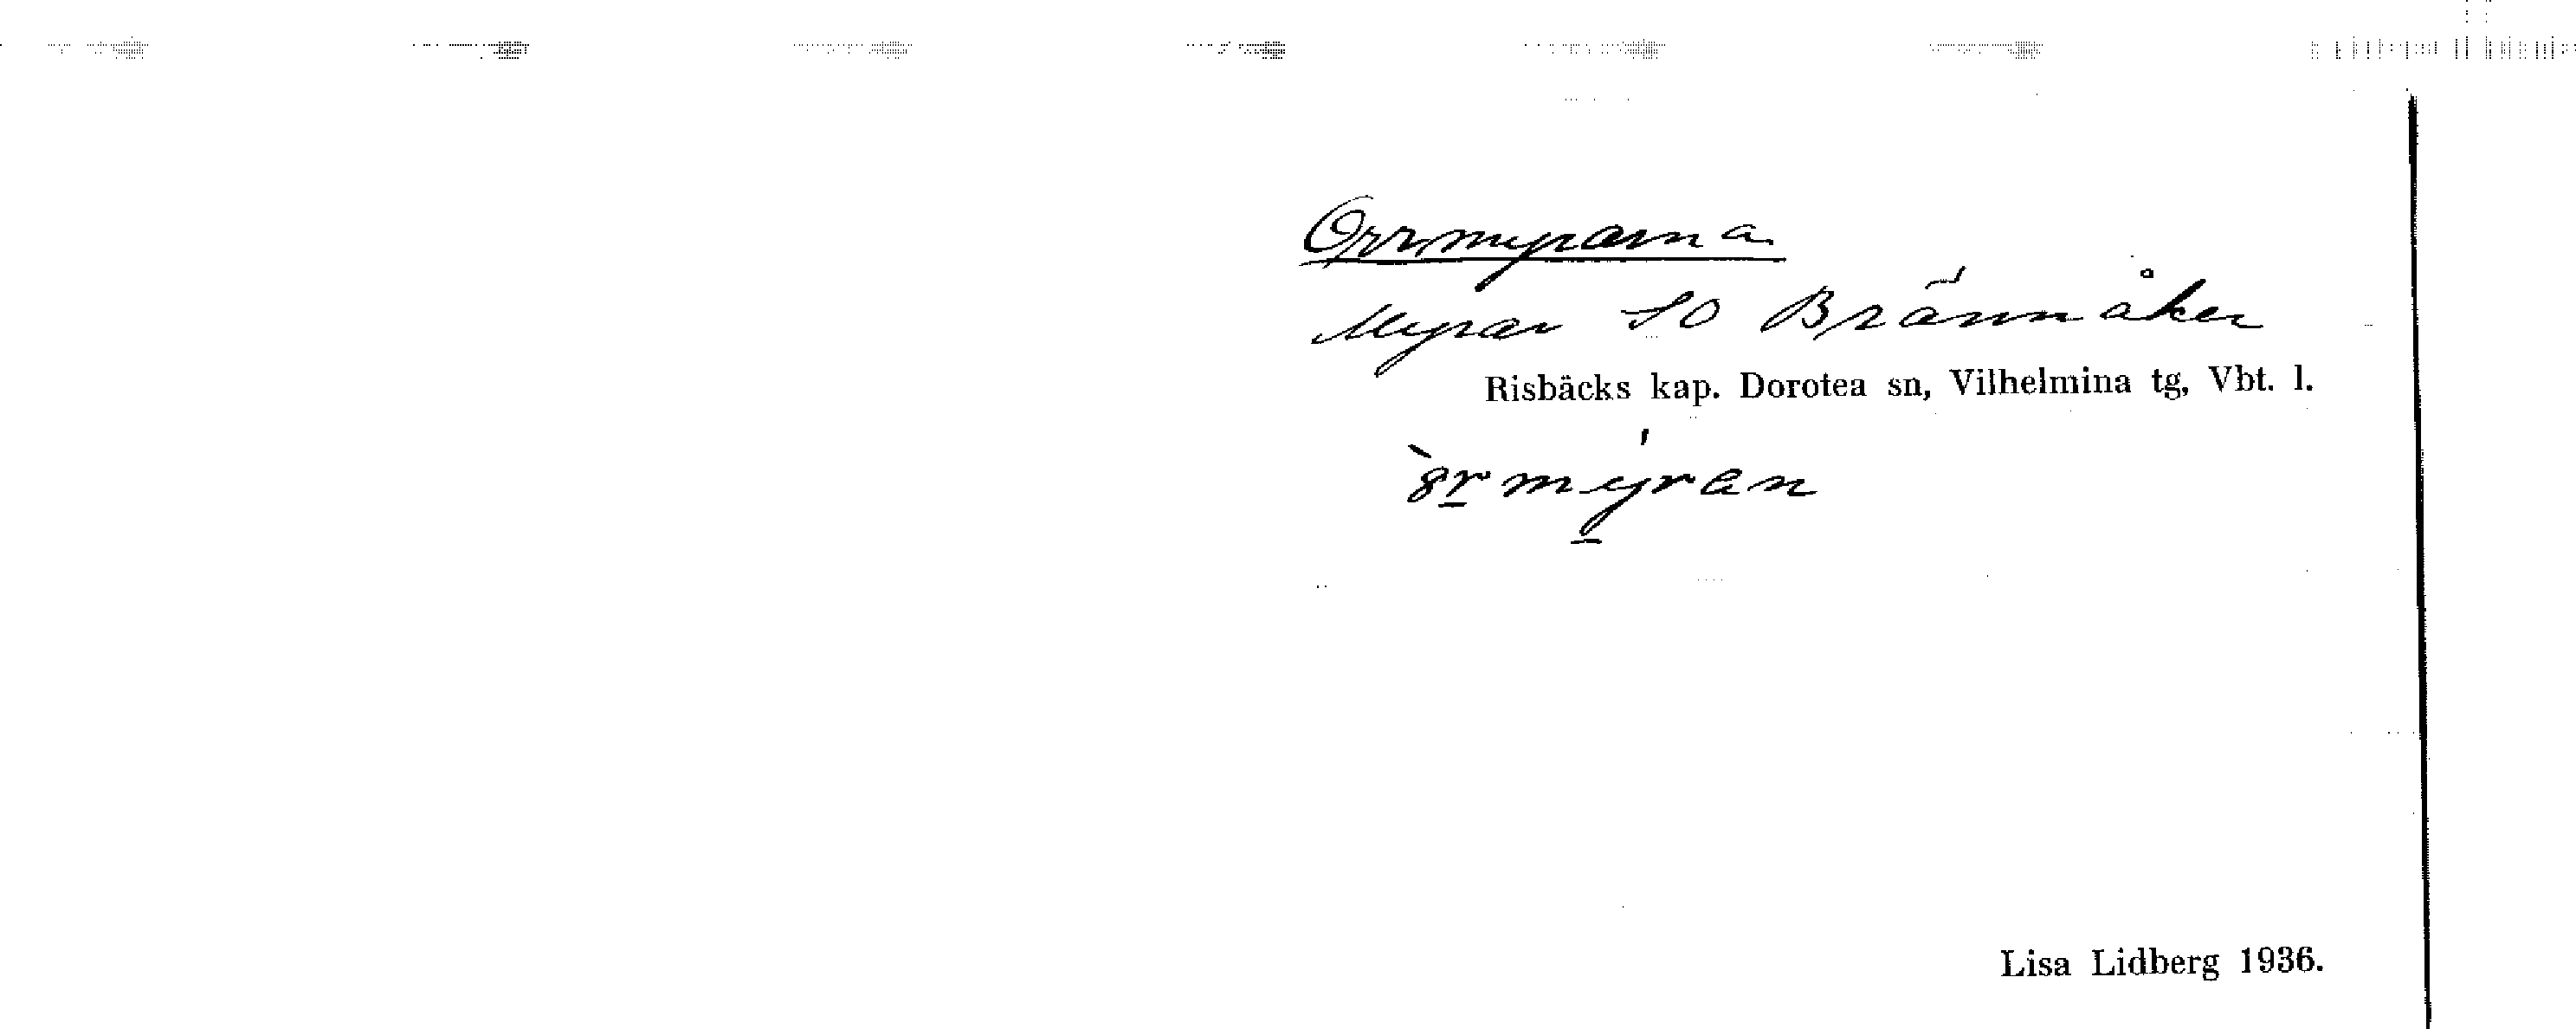 Orrmyrarna
Myrar SO Brännåker
Risbäcks kap. Dorotea sn, Vilhelmina tg, Vbt. l.
Lisa Lidberg 1936.